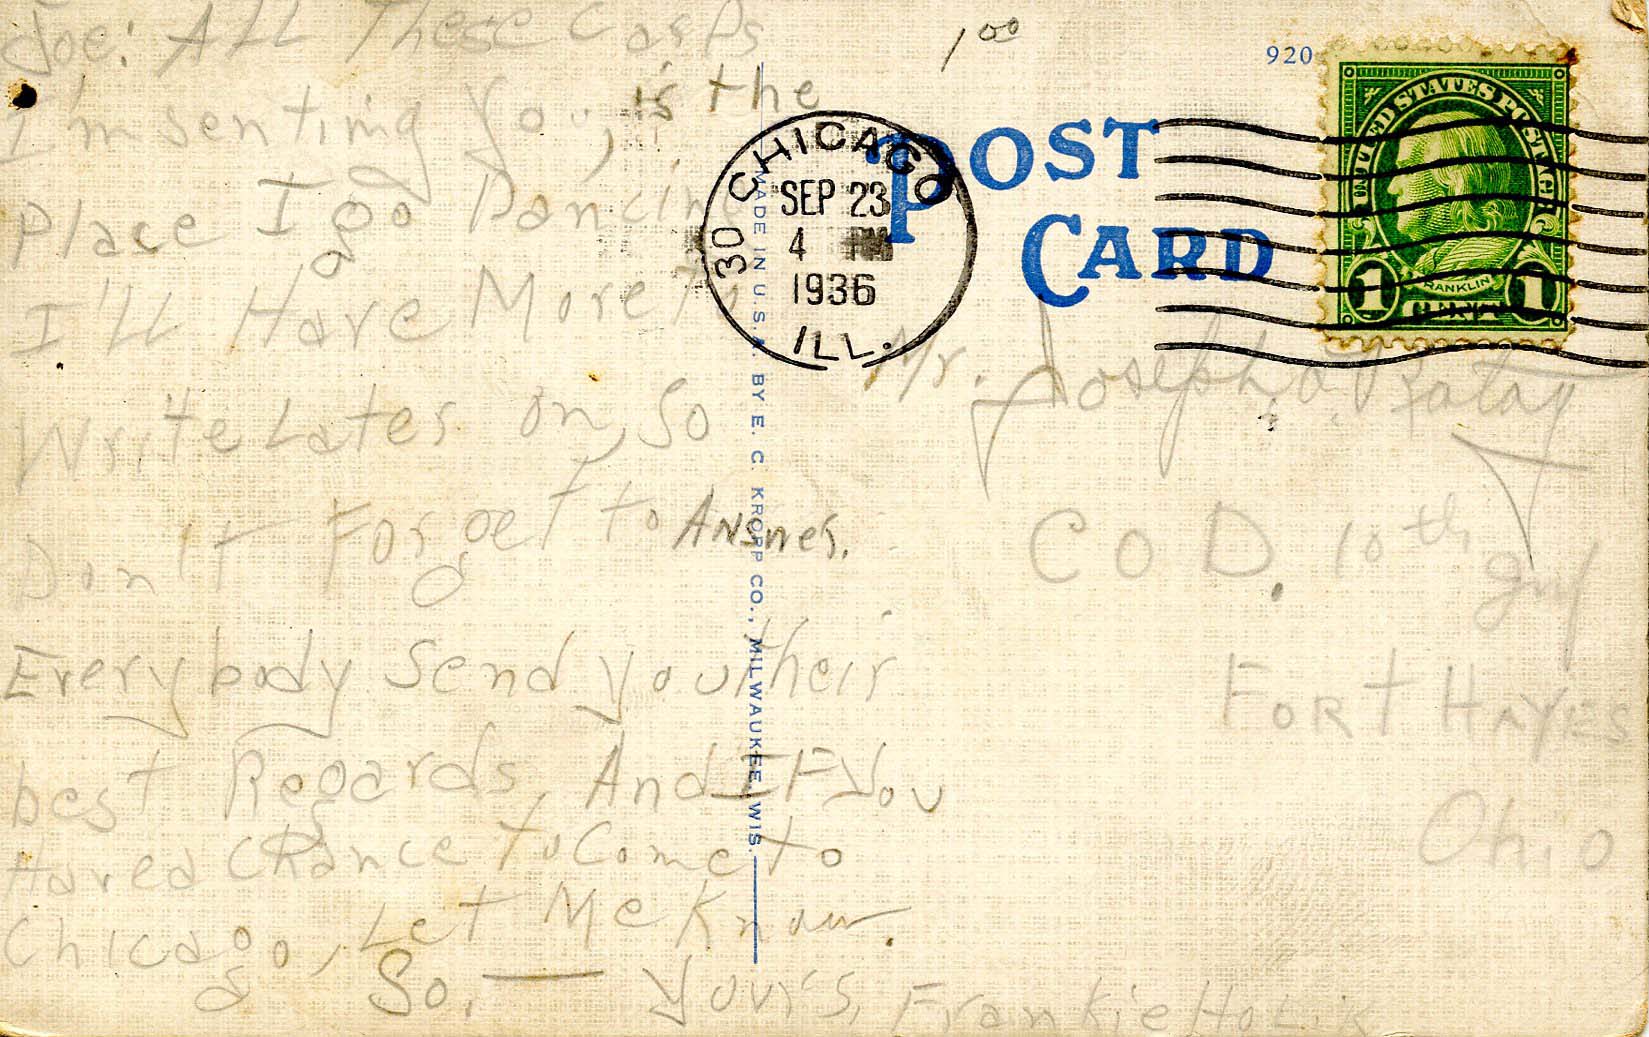 Joe: All These Cards
I'm senting You, is the
Place I go Dancing
I'll Have More To
Write Later on, So
Don't Forget to Answer.
Everybody Send you their
best Regards, And IF You
Have a Chance to Come to
Chicago, Let Me Know.
So. — Yours, Frankie Holik
1 00
920
POST
CARD
30 CHICAGO
SEP 23
4 PM
1936
ILL.
UNITED STATES POSTAGE
FRANKLIN
1 CENT 1
MADE IN U.S.A. BY E. C. KROPP CO., MILWAUKEE, WIS.
Mr. Joseph Ratay
Co D. 10th Inf
FORT HAYES
Ohio